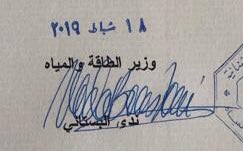 ١٨ شباط ٢٠١٩
وزير الطاقة والمياه
ندى البستاني